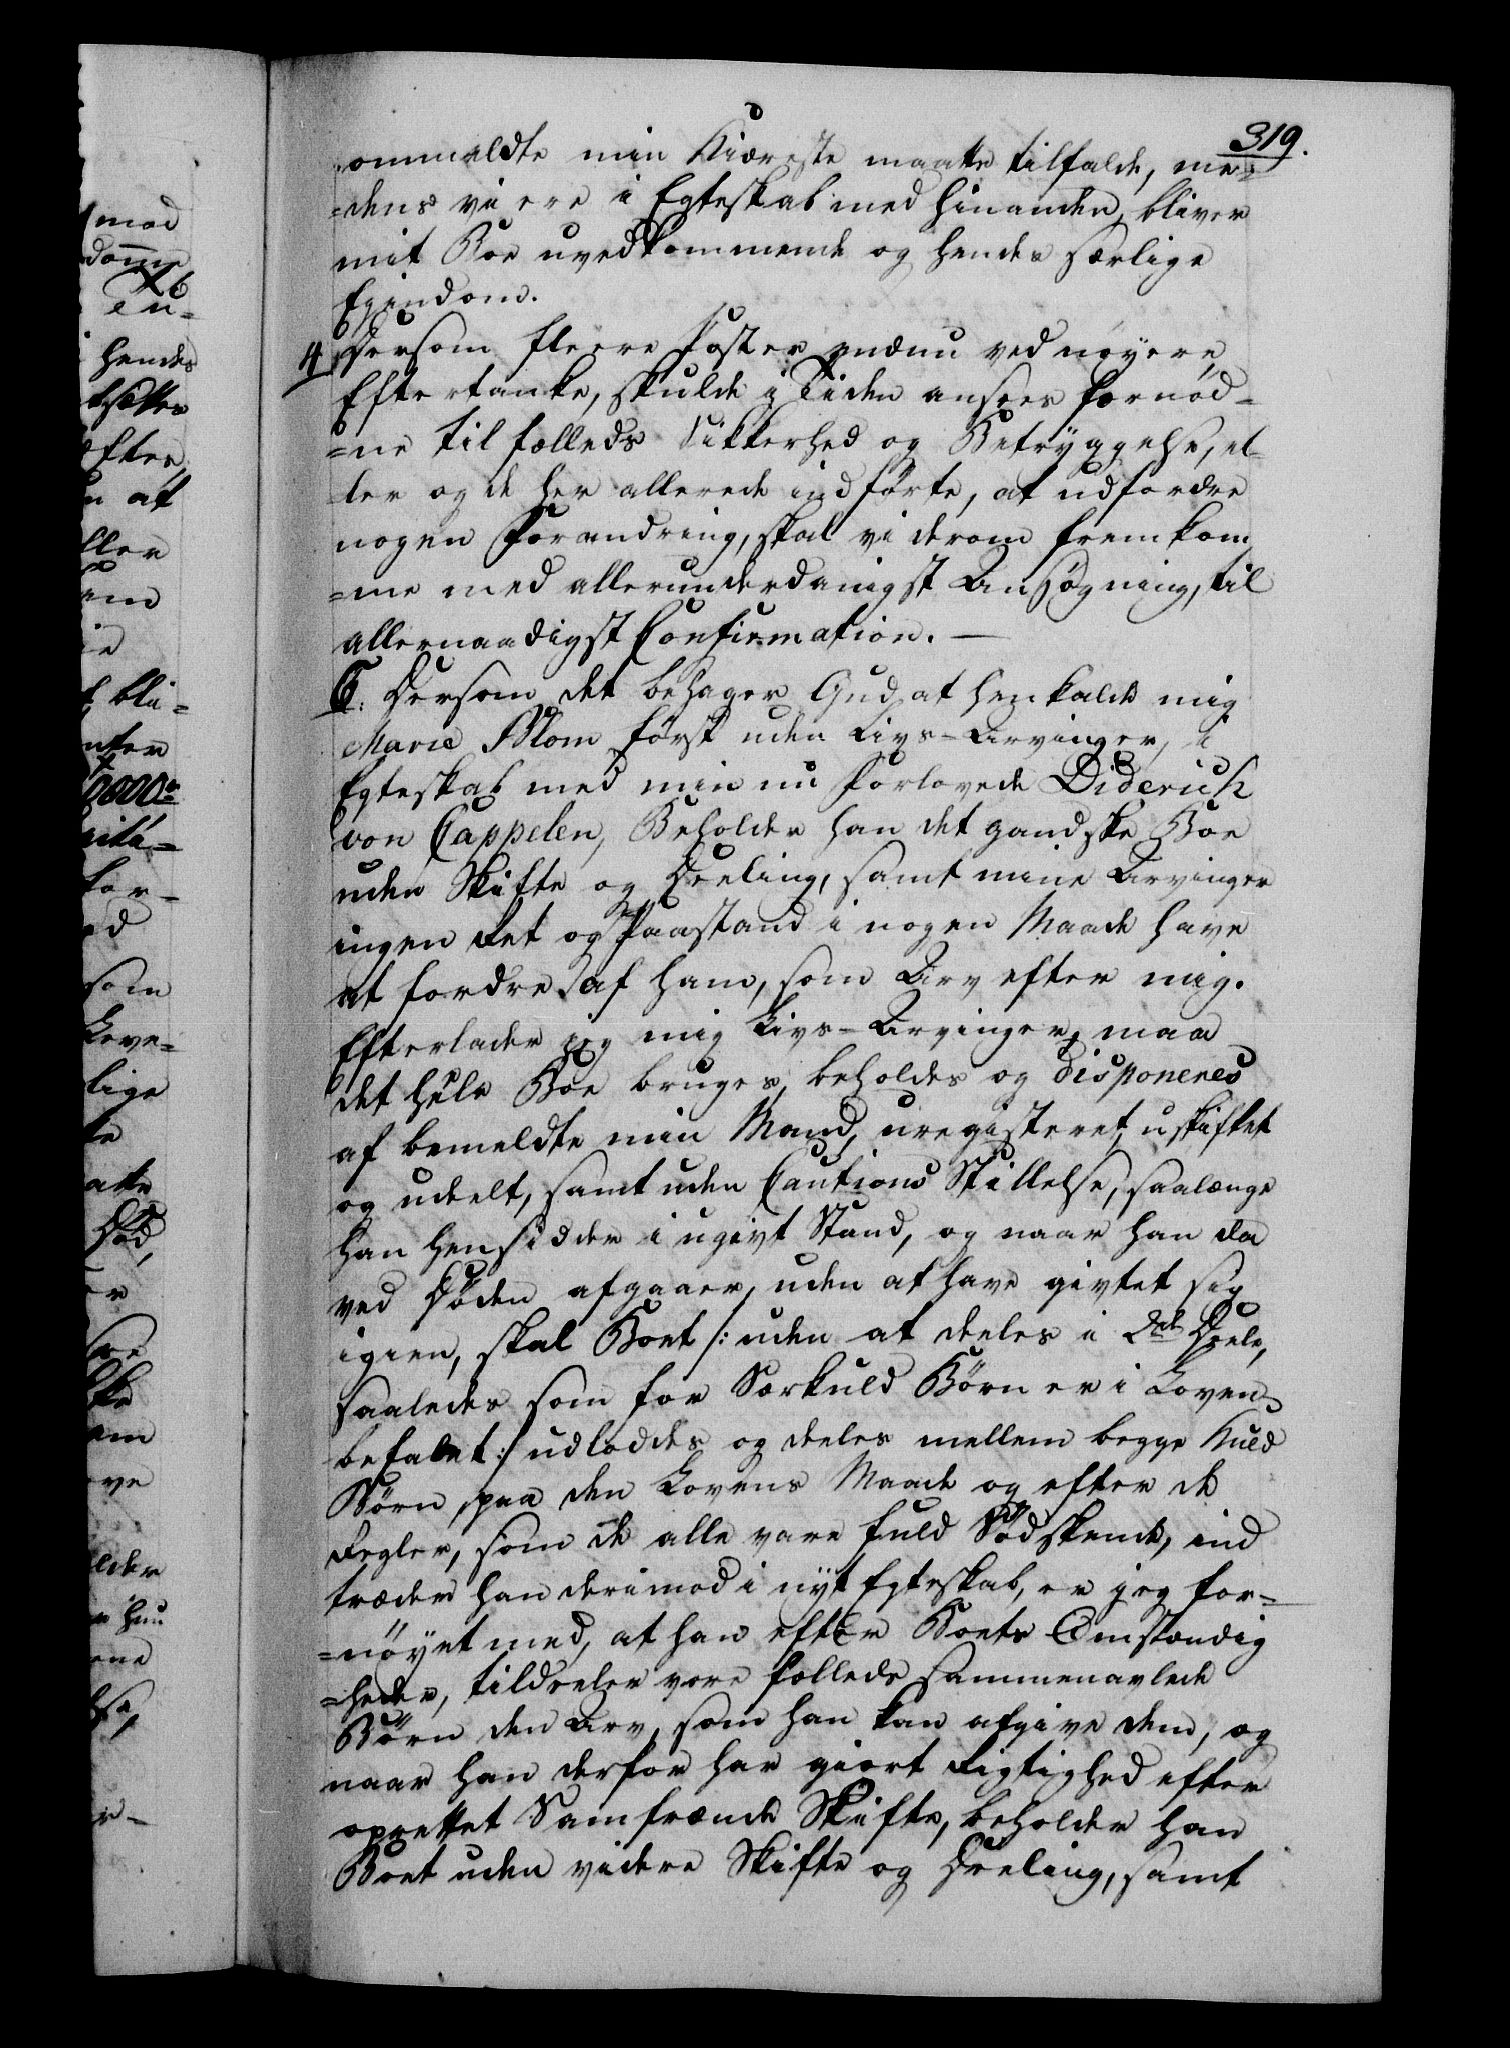 319.
ommeldte min Kiæreste maatte tilfalde, me-
=dens vi ere i Egteskab med hinanden, bliver
mit Boe uvedkommende og hendes særlige
Egindom.
4 Dersom fleere Poster endnu ved nøyere
Eftertanke, skulde i Tiden ansees fornød-
=ne til fælleds Sikkerhed og Betryggelse, el-
ler og de her allerede indførte, at udfordre
nogen Forandring, skal vi derom fremkom
=me med allerunderdanigst Ansøgning, til
allernaadigst Confirmation. —
C: Dersom det behager Gud at henkalde mig
Marie Blom først uden Livs-Arvinger, i
Egteskab med min nu forlovede Diderich
von Cappelen, Beholder han det gandske Boe
uden Skifte og Deeling, samt mine Arvinger
ingen Ret og Paastand i nogen Maade have
at fordre af ham, som Arv efter mig.
Efterlader jeg mig Livs-Arvinger, maa
det hele Boe bruges, beholdes og disponeres
af bemeldte min Mand, uregisteret, uskiftet
og udeelt, samt uden Cautions Stillelse, saalænge
han hensidder i ugivt Stand, og naar han da
ved Døden afgaaer, uden at have givtet sig
igien, skal Boet /: uden at deeles i 2de Deele,
saaledes som for Særkuld Børn er i Loven
befalet :/ udloddes og deeles mellem begge Kuld
Børn, paa den Lovens Maade og efter de
Regler, som de alle vare fuld Sødskende, ind
træder han derimod i nyt Egteskab, er jeg for-
=nøyet med, at han efter Boets Omstændig
=heder, tildeeler vore fælleds sammenavlede
Børn den Arv, som han kan afgive dem, og
naar han derfor har giort Rigtighed efter
oprettet Samfrænde Skifte, beholder han
Boet uden videre Skifte og Deeling, samt